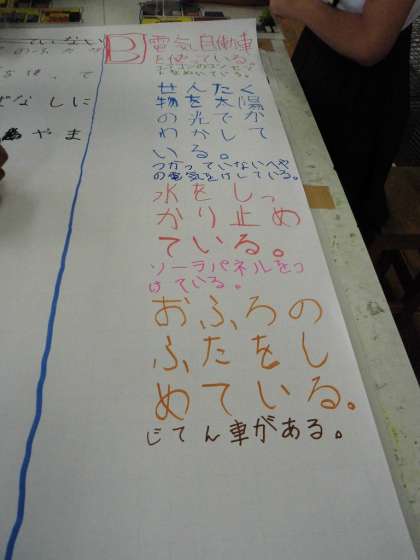 B 電気自動車
を使っている。
せんたく
物を太陽
の光でか
わかして
いる。
つかっていないへや
の電気をけしている。
水をしっ
かり止め
ている。
ソーラパネルをつ
けている。
おふろの
ふたをし
めている。
じてん車がある。
ていない
なしに
やま